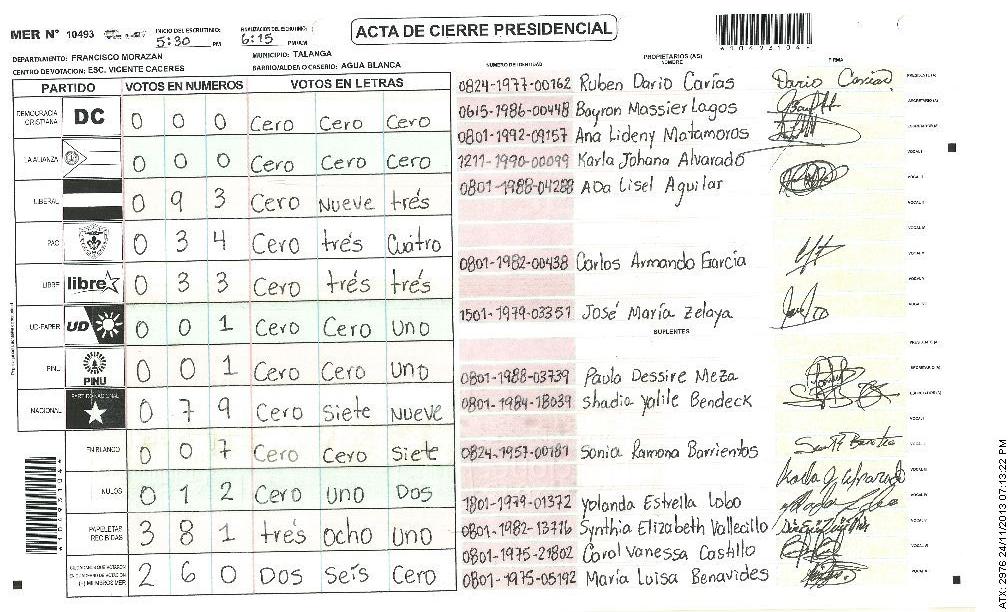 MER N° 10493
INICIO DEL ESCRUTINIO: 5:30 PM
FINALIZACION DEL ESCRUTINIO: 6:15 PM/AM
ACTA DE CIERRE PRESIDENCIAL
DEPARTAMENTO: FRANCISCO MORAZAN
MUNICIPIO: TALANGA
CENTRO DE VOTACION: ESC. VICENTE CACERES
BARRIO/ALDEA O CASERIO: AGUA BLANCA
PARTIDO VOTOS EN NUMEROS VOTOS EN LETRAS
DEMOCRACIA CRISTIANA DC 0 0 0 Cero Cero Cero
LA ALIANZA 0 0 0 Cero Cero Cero
LIBERAL 0 9 3 Cero Nueve trés
PAC 0 3 4 Cero trés Cuatro
LIBRE libre 0 3 3 Cero trés trés
UD-FAPER UD 0 0 1 Cero Cero Uno
PINU PINU 0 0 1 Cero Cero Uno
NACIONAL PARTIDO NACIONAL 0 7 9 Cero Siete Nueve
EN BLANCO 0 0 7 Cero Cero Siete
NULOS 0 1 2 Cero Uno Dos
PAPELETAS RECIBIDAS 3 8 1 trés Ocho Uno
2 6 0 Dos Seis Cero
NUMERO DE IDENTIDAD PROPIETARIOS (AS) NOMBRE FIRMA
0824-1977-00162 Ruben Dario Carías Dario Carias
0615-1986-00448 Bayron Massier Lagos
0801-1992-09157 Ana Lideny Matamoros
1211-1990-00099 Karla Johana Alvarado
0801-1988-04288 ADa Lisel Aguilar
0801-1982-00438 Carlos Armando Garcia
1501-1979-03351 José María Zelaya
SUPLENTES
0801-1988-03739 Paulo Dessire Meza
0801-1984-18039 Shadia Yalile Bendeck
0824-1957-00181 Sonia Ramona Barrientos
1801-1979-01372 Yolanda Estrella Lobo
0801-1982-13716 Synthia Elizabeth Vallecillo
0801-1975-21802 Carol Vanessa Castillo
0801-1975-05192 María Luisa Benavides
ATX: 2976 24/11/2013 07:13:22 PM